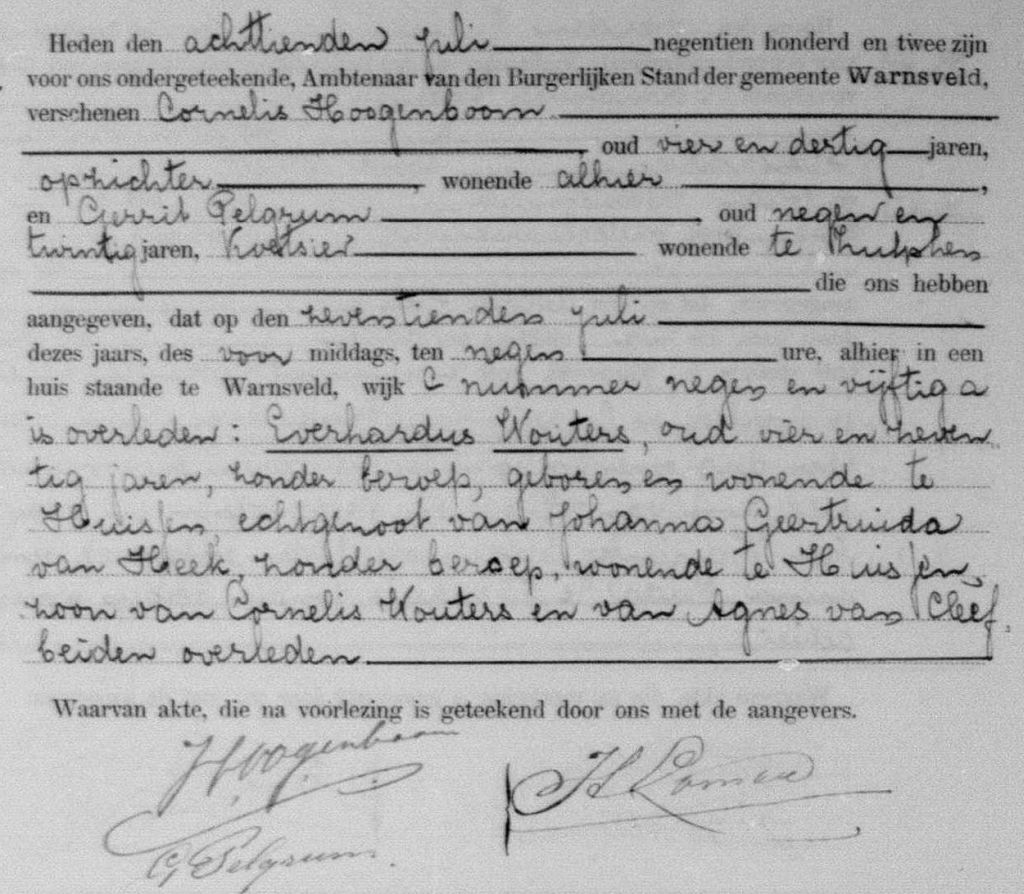 Heden den achttienden juli negentien honderd en twee zijn
voor ons ondergeteekende, Ambtenaar van den Burgerlijken Stand der gemeente Warnsveld,
verschenen Cornelis Hoogenboom
oud vier en dertig jaren,
oprichter, wonende alhier,
en Gerrit Pelgrum, oud negen en
twintig jaren, koetsier wonende te Zutphen
die ons hebben
aangegeven, dat op den zeventienden juli
dezes jaars, des voor middags, ten negen ure, alhier in een
huis staande te Warnsveld, wijk C nummer negen en vijftig a
is overleden: Everhardus Wouters, oud vier en zeven
tig jaren, zonder beroep, geboren en wonende te
Huissen, echtgenoot van Johanna Geertruida
van Heek, zonder beroep, wonende te Huissen,
zoon van Cornelis Wouters en van Agnes van Cleef,
beiden overleden
Waarvan akte, die na voorlezing is geteekend door ons met de aangevers.
Hoogenboom
G Pelgrum.